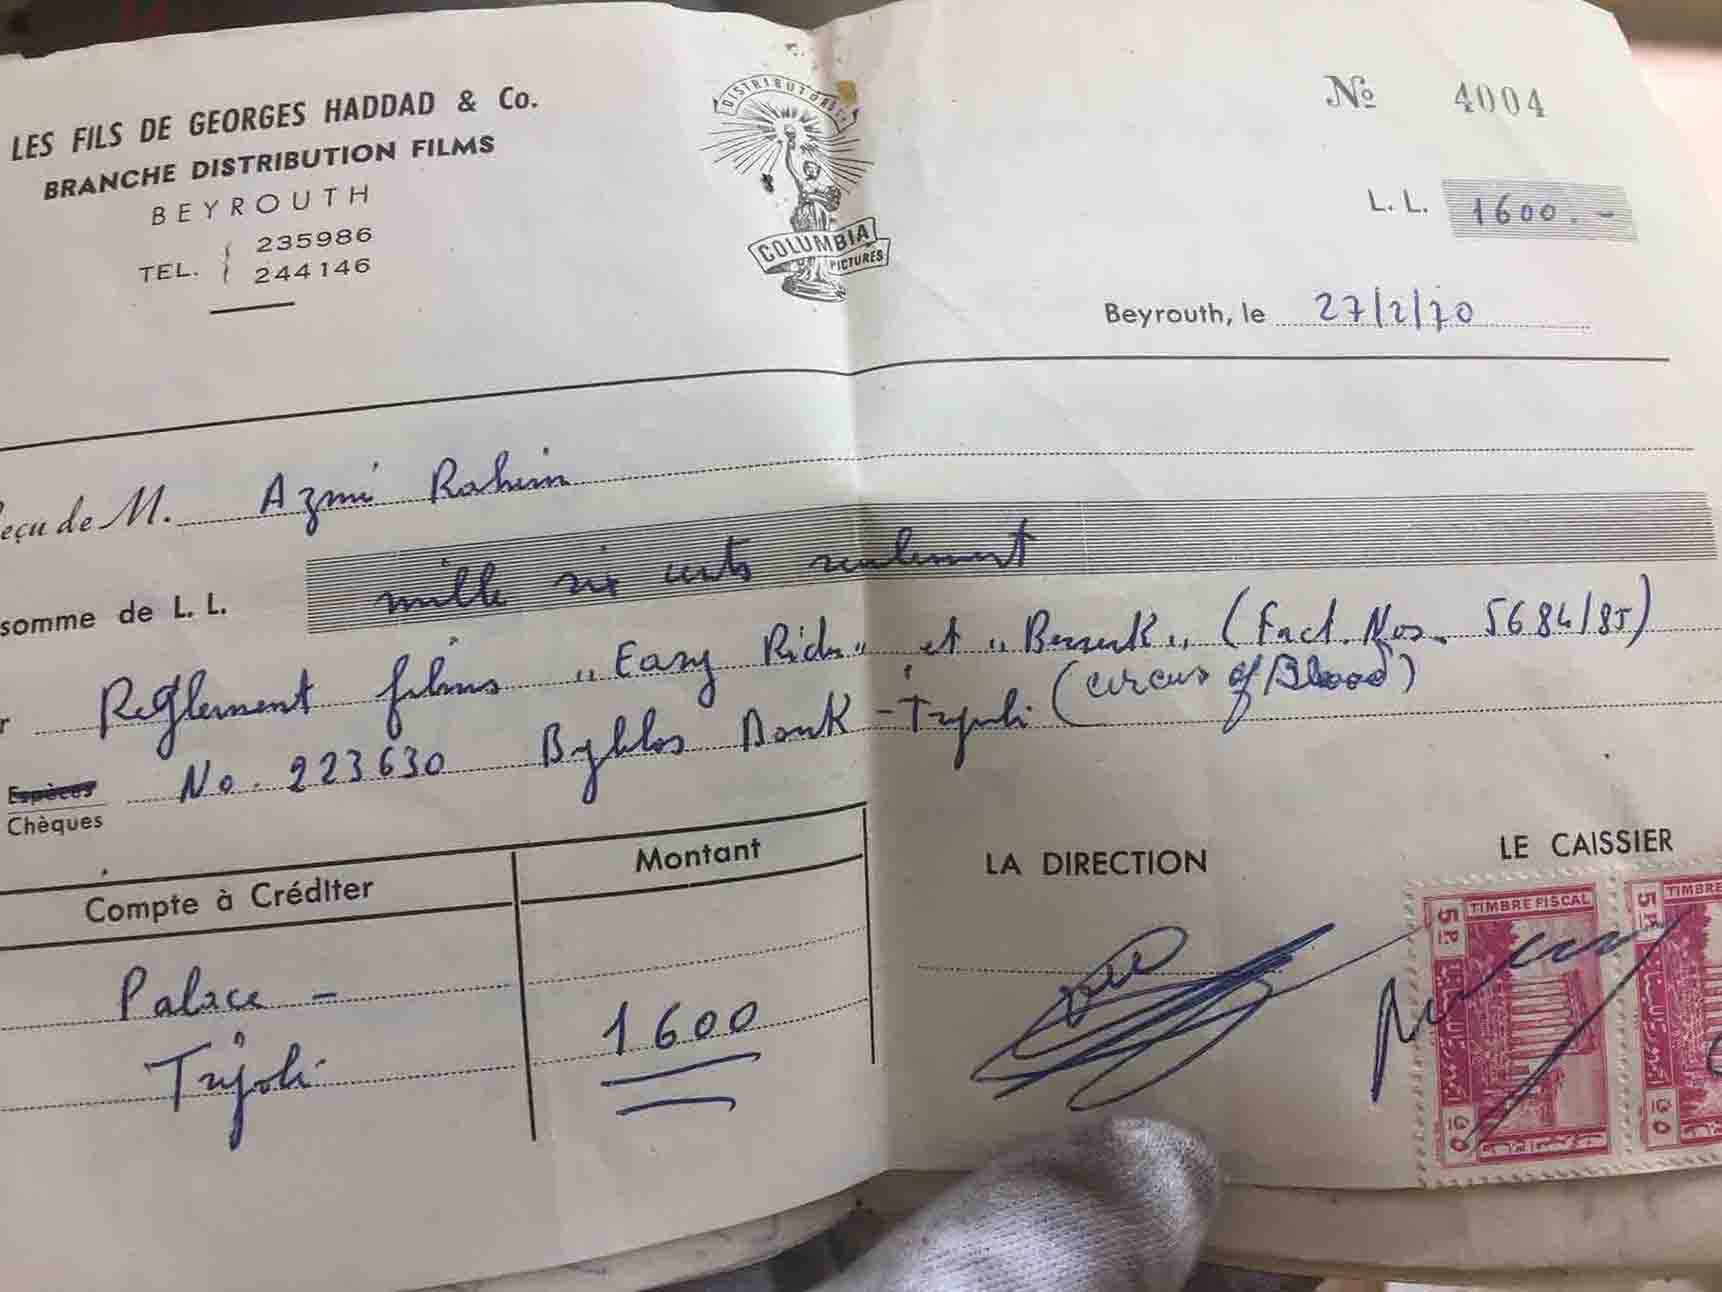 LES FILS DE GEORGES HADDAD & Co.
BRANCHE DISTRIBUTION FILMS
BEYROUTH
TEL. 235986
244146
DISTRIBUTORS
COLUMBIA
PICTURES
No 4004
L. L. 1600.-
Beyrouth, le 27/2/70
eçu de M. Azmi Rahim
somme de L. L. mille six cents seulement
r Règlement films "Easy Rider" et "Berserk" (Fact. Nos. 5684/85)
(circus of Blood)
Espèces
Chèques No. 223630 Byblos Bank - Tripoli
Compte à Créditer Montant
Palace -
Tripoli 1600
LA DIRECTION
LE CAISSIER
TIMBRE FISCAL
5 P.
TIMBRE
5 P.